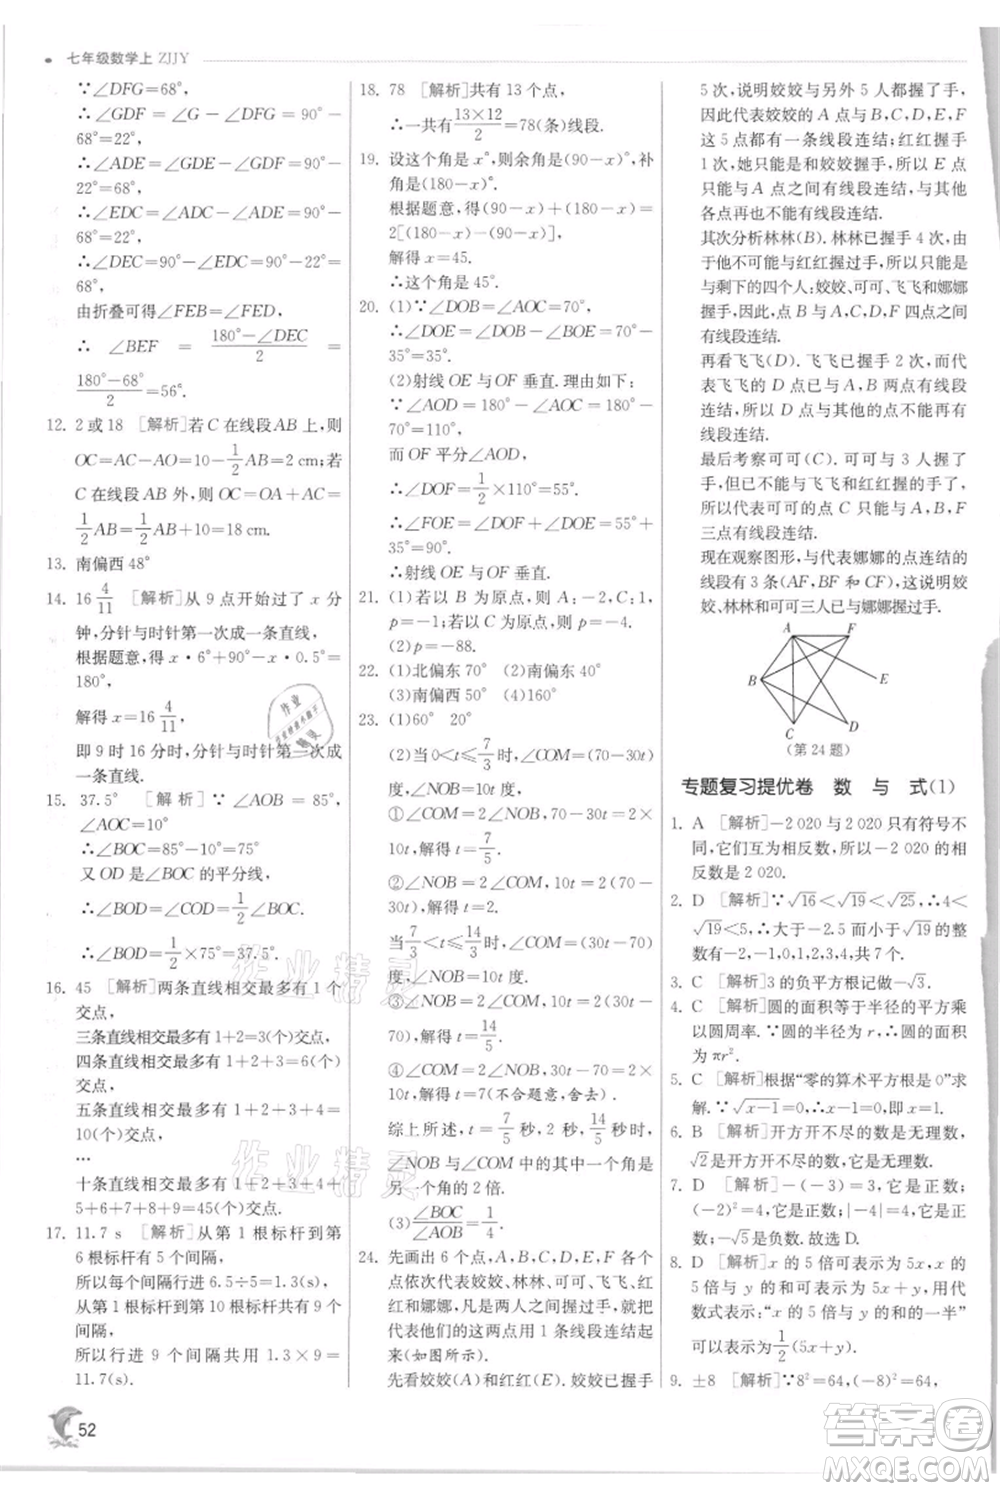 七年级数学上 ZJJY
∵∠DFG=68°,
∴∠GDF=∠GFD-∠DFG=90°-
68°=22°,
∴∠ADE=∠GDE-∠GDF=90°-
22°=68°,
∴∠EDC=∠ADC-∠ADE=90°-
68°=22°,
∴∠DEC=90°-∠EDC=90°-22°=
68°,
由折叠可得∠FEB=∠FED,
∴ ∠BEF = (180°-∠DEC)/2 =
(180°-68°)/2=56°.
12. 2或18 [解析]若C在线段AB上,则
OC=AC-AO=10-1/2AB=2 cm;若
C在线段AB外,则OC=OA+AC=
1/2AB=1/2AB+10=18 cm.
13. 南偏西48°
14. 16 4/11 [解析]从9点开始过了x分
钟,分针与时针第一次成一条直线,
根据题意,得x·6°+90°-x·0.5°=
180°,
解得x=16 4/11,
即9时16分时,分针与时针第一次成
一条直线.
15. 37.5° [解析]∵∠AOB=85°,
∠AOC=10°
∴∠BOC=85°-10°=75°
又OD是∠BOC的平分线,
∴∠BOD=∠COD=1/2∠BOC,
∴∠BOD=1/2×75°=37.5°.
16. 45 [解析]两条直线相交最多有1个
交点,
三条直线相交最多有1+2=3(个)交点,
四条直线相交最多有1+2+3=6(个)
交点,
五条直线相交最多有1+2+3+4=
10(个)交点,
…
十条直线相交最多有1+2+3+4+
5+6+7+8+9=45(个)交点.
17. 11.7 s [解析]从第1根标杆到第
6根标杆有5个间隔,
所以每个间隔行进6.5÷5=1.3(s),
从第1根标杆到第10根标杆共有9个
间隔,
所以行进9个间隔共用1.3×9=
11.7(s).
18. 78 [解析]共有13个点,
∴一共有13×12/2=78(条)线段.
19. 设这个角是x°,则余角是(90-x)°,补
角是(180-x)°,
根据题意,得(90-x)+(180-x)=
2[(180-x)-(90-x)],
解得x=45.
∴这个角是45°.
20. (1)∵∠DOB=∠AOC=70°,
∴∠DOE=∠DOB-∠BOE=70°-
35°=35°.
(2)射线OE与OF垂直.理由如下:
∵∠AOD=180°-∠AOC=180°-
70°=110°,
而OF平分∠AOD,
∴∠DOF=1/2×110°=55°.
∴∠FOE=∠DOF+∠DOE=55°+
35°=90°.
∴射线OE与OF垂直.
21. (1)若以B为原点,则A:-2,C:1,
p=-1;若以C为原点,p=-4.
(2)p=-88.
22. (1)北偏东70° (2)南偏东40°
(3)南偏西50° (4)160°
23. (1)60° 20°
(2)当0<t≤7/3时,∠COM=(70-30t)
度,∠NOB=10t度,
①∠COM=2∠NOB,70-30t=2×
10t,解得t=7/5;
②∠NOB=2∠COM,10t=2(70-
30t),解得t=2.
当7/3<t≤14/3时,∠COM=(30t-70)
度,∠NOB=10t度,
③∠NOB=2∠COM,10t=2(30t-
70),解得t=14/5;
④∠COM=2∠NOB,30t-70=2×
10t,解得t=7(不合题意,舍去).
综上所述,t=7/5或2或14/5时,
∠NOB与∠COM中的一个角是另
一个角的2倍.
(3)∠BOC/∠AOB=1/4
24. 先画出6个点,A,B,C,D,E,F,各
点依次代表姣姣、林林、可可、飞飞、红
红和娜娜,凡是两人之间握过手,代表
他们的这两点用1条线段连结起来
(如图所示).
先看姣姣(A)和红红(E),姣姣已握手
5次,因此姣姣与另外5人都握了手,
因此代表姣姣的A点与B,C,D,E,F
这5点都有一条线段连结;红红握手
1次,她只能是和姣姣握手,所以E点
只能与A点之间有线段连结,与其他
各点再也不能有线段连结.
其次分析林林(B).林林已握手4次,
由于他不可能与红红握过手,所以他
与剩下的四个人:姣姣、可可、飞飞和娜娜
握手,因此,点B与A,C,D,F四点之间
有线段连结.
再看飞飞(D).飞飞已握手2次,而代
表飞飞的D点已与A,B两点有线段
连结,所以D点不可能再与其他点有
线段连结.
最后考察可可(C).可可与3人握了
手,但他不可能与飞飞和红红握了手,
所以代表可可的点C只能与A,B,F
三点有线段连结.
现在观察图形,与代表娜娜的点连结的
线段有三条(AF,BF和CF),这说明姣
姣、林林和可可三人已与娜娜握过手.
A F
B E
C D
(第24题)
专题复习提优卷 数 与 式(1)
1. A [解析]-2 020与2 020只有符号不
同,它们互为相反数,所以-2 020的相
反数是2 020.
2. D [解析]∵√16<√19<√25,∴4<
√19<5,∴大于-2.5而小于√19的整
数有-2,-1,0,1,2,3,4,共7个.
3. C [解析]3的负平方根记做-√3.
4. C [解析]圆的面积等于半径的平方乘
以圆周率.∵圆的半径为r,∴圆的面积
为πr².
5. C [解析]根据“零的算术平方根是0”求
解.∵√x-1=0,∴x-1=0,即x=1.
6. B [解析]∵开方开不尽的数是无理数,
√2是开方开不尽的数,∴√2是无理数.
7. D [解析]-(-3)=3,它是正数;
(-3)²=9,它是正数;|-5|=5,它是正数;
-√5是负数.故选D.
8. D [解析]x的5倍可以表示为5x,x的
5倍与y的和可以表示为5x+y,用代
数式表示:“x的5倍与y的和的一半”
可以表示为1/2(5x+y).
9. ±8 [解析]∵8²=64,(-8)²=64,
52
作业精灵
作业精灵
答案圈
MXQE.COM